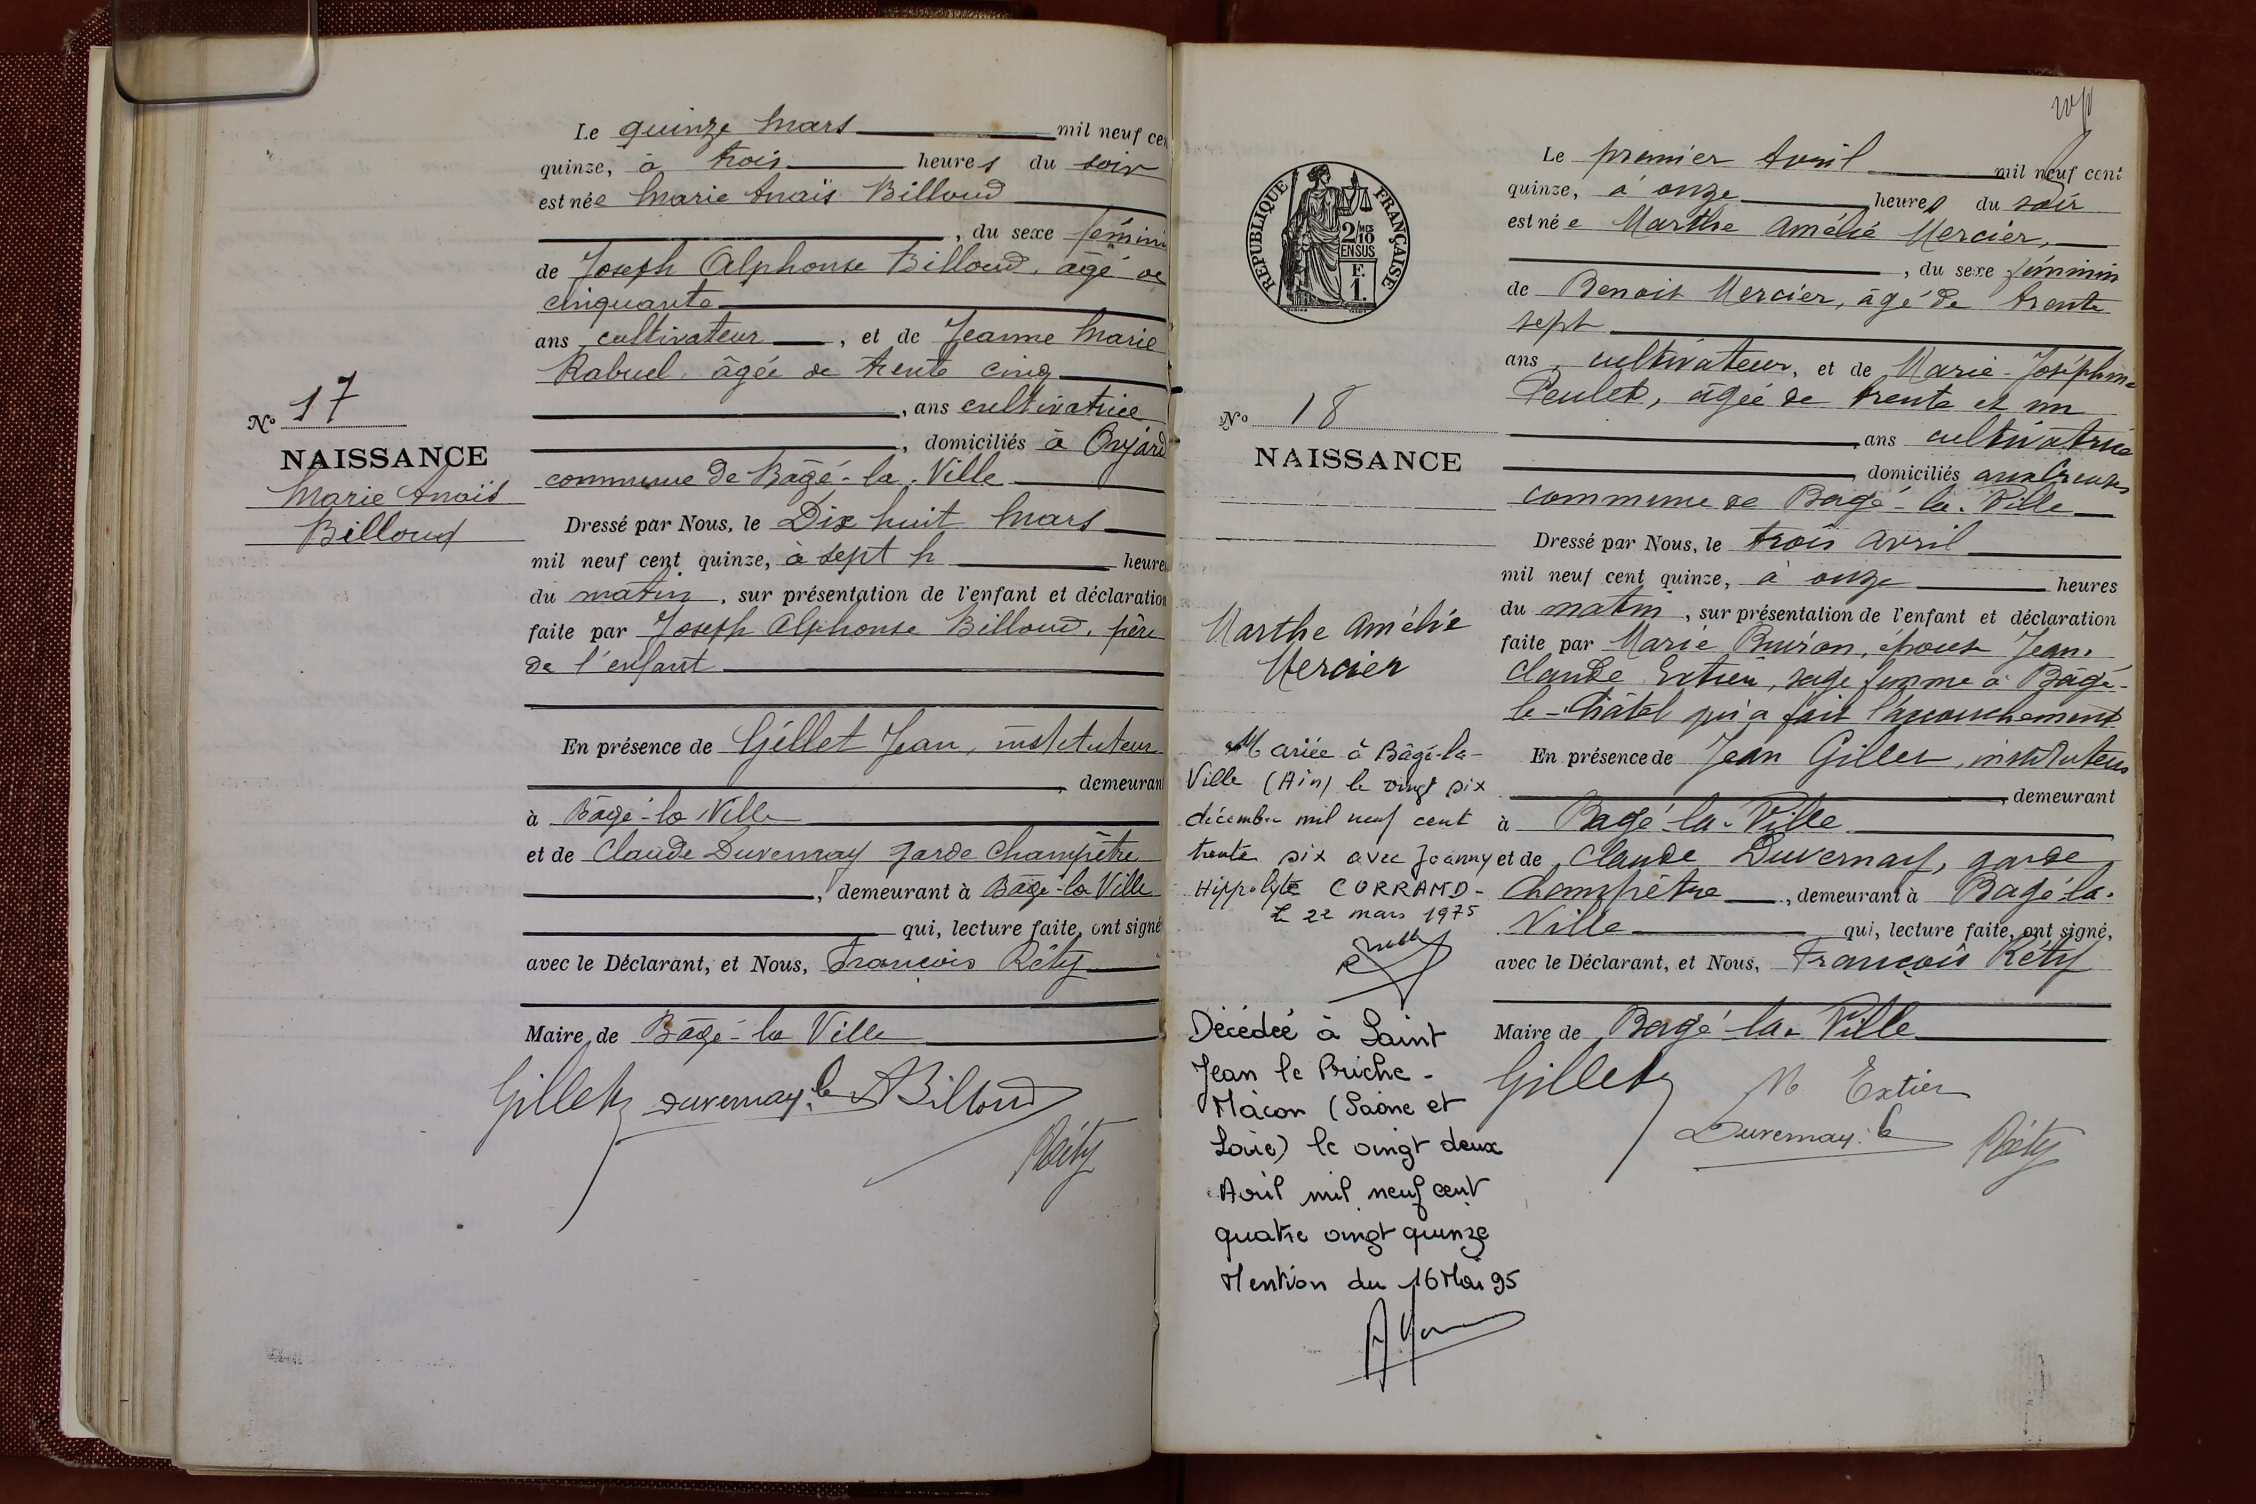 Le quinze Mars mil neuf cen
quinze, à trois heures du soir
est née Marie Anaïs Billoud
, du sexe fémini
de Joseph Alphonse Billoud, âgé de
cinquante
ans, cultivateur, et de Jeanne Marie
Rabuel, âgée de trente cinq
, ans cultivatrice
, domiciliés à
commune de Bâgé-la-Ville
Dressé par Nous, le Dix huit Mars
mil neuf cent quinze, à sept h heures
du matin, sur présentation de l'enfant et déclaration
faite par Joseph Alphonse Billoud, père
de l'enfant
En présence de Gillet Jean, instituteur
, demeurant
à Bâgé-la Ville
et de Claude Duvernay garde champêtre
, demeurant à Bâgé-la Ville
qui, lecture faite, ont signé
avec le Déclarant, et Nous, François Réty
Maire de Bâgé-la Ville
Gillet Duvernay. Billoud
Réty
No 17
NAISSANCE
Marie Anaïs
Billoud
RÉPUBLIQUE FRANÇAISE
2/10
EN SUS
F.
1.
No 18
NAISSANCE
Marthe Amélie
Mercier
Mariée à Bâgé-la-
Ville (Ain) le vingt six
décembre mil neuf cent
trente six avec Joanny
Hippolyte CORRAND-
Le 22 mars 1975
Décédée à Saint
Jean le Priche-
Mâcon (Saône et
Loire) le vingt deux
Avril mil neuf cent
quatre vingt quinze
Mention du 16 Mai 95
Le premier Avril mil neuf cent
quinze, à onze heures du soir
est née Marthe Amélie Mercier,
, du sexe féminin
de Benoit Mercier, âgé de trente
sept
ans, cultivateur, et de Marie-Joséphine
Peulet, âgée de trente et un
ans cultivatrice
domiciliés aux Greuzes
commune de Bagé-la-Ville
Dressé par Nous, le trois avril
mil neuf cent quinze, à onze heures
du matin, sur présentation de l'enfant et déclaration
faite par Marie Buiron, épouse Jean
Claude Extier, sage femme à Bâgé-
le-Châtel qui a fait l'accouchement
En présence de Jean Gillet, instituteur
, demeurant
à Bagé-la-Ville
et de Claude Duvernay, garde
Champêtre, demeurant à Bagé-la-
Ville qui, lecture faite, ont signé,
avec le Déclarant, et Nous, François Réty
Maire de Bagé-la-Ville
Gillet M Extier
Duvernay. Réty